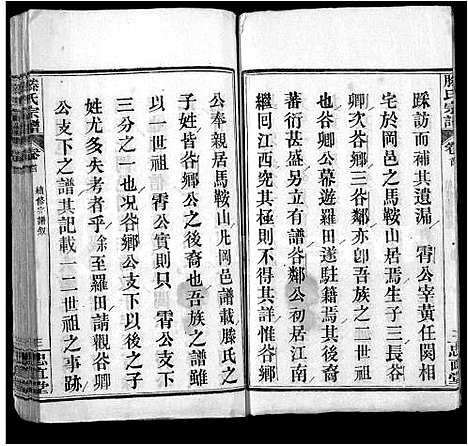 滕氏宗譜
卷首
踩訪而補其遺漏 霄公宰黃任閱相
宅於岡邑之馬鞍山居焉生子三長谷
卿次谷鄉三谷鄰亦吾族之二世祖
而谷鄉公幕遊羅田遂駐籍焉子孫
蕃衍並甚又有譜谷鄰公初居江南
繼回江西竟失考不得其詳惟春谷得
公奉親居馬鞍山凡岡邑譜載滕氏之
子姓皆谷鄉公之後裔也吾族之譜雖
以一世祖 霄公實則只 霄公支下
三分之一也況谷鄉公支下以後之子
姓尤多失考者乎余至羅田請觀谷鄉
公支下之譜其記載一二世祖之事跡
滕氏宗譜
卷首
續修宗譜敘
三
忠直堂